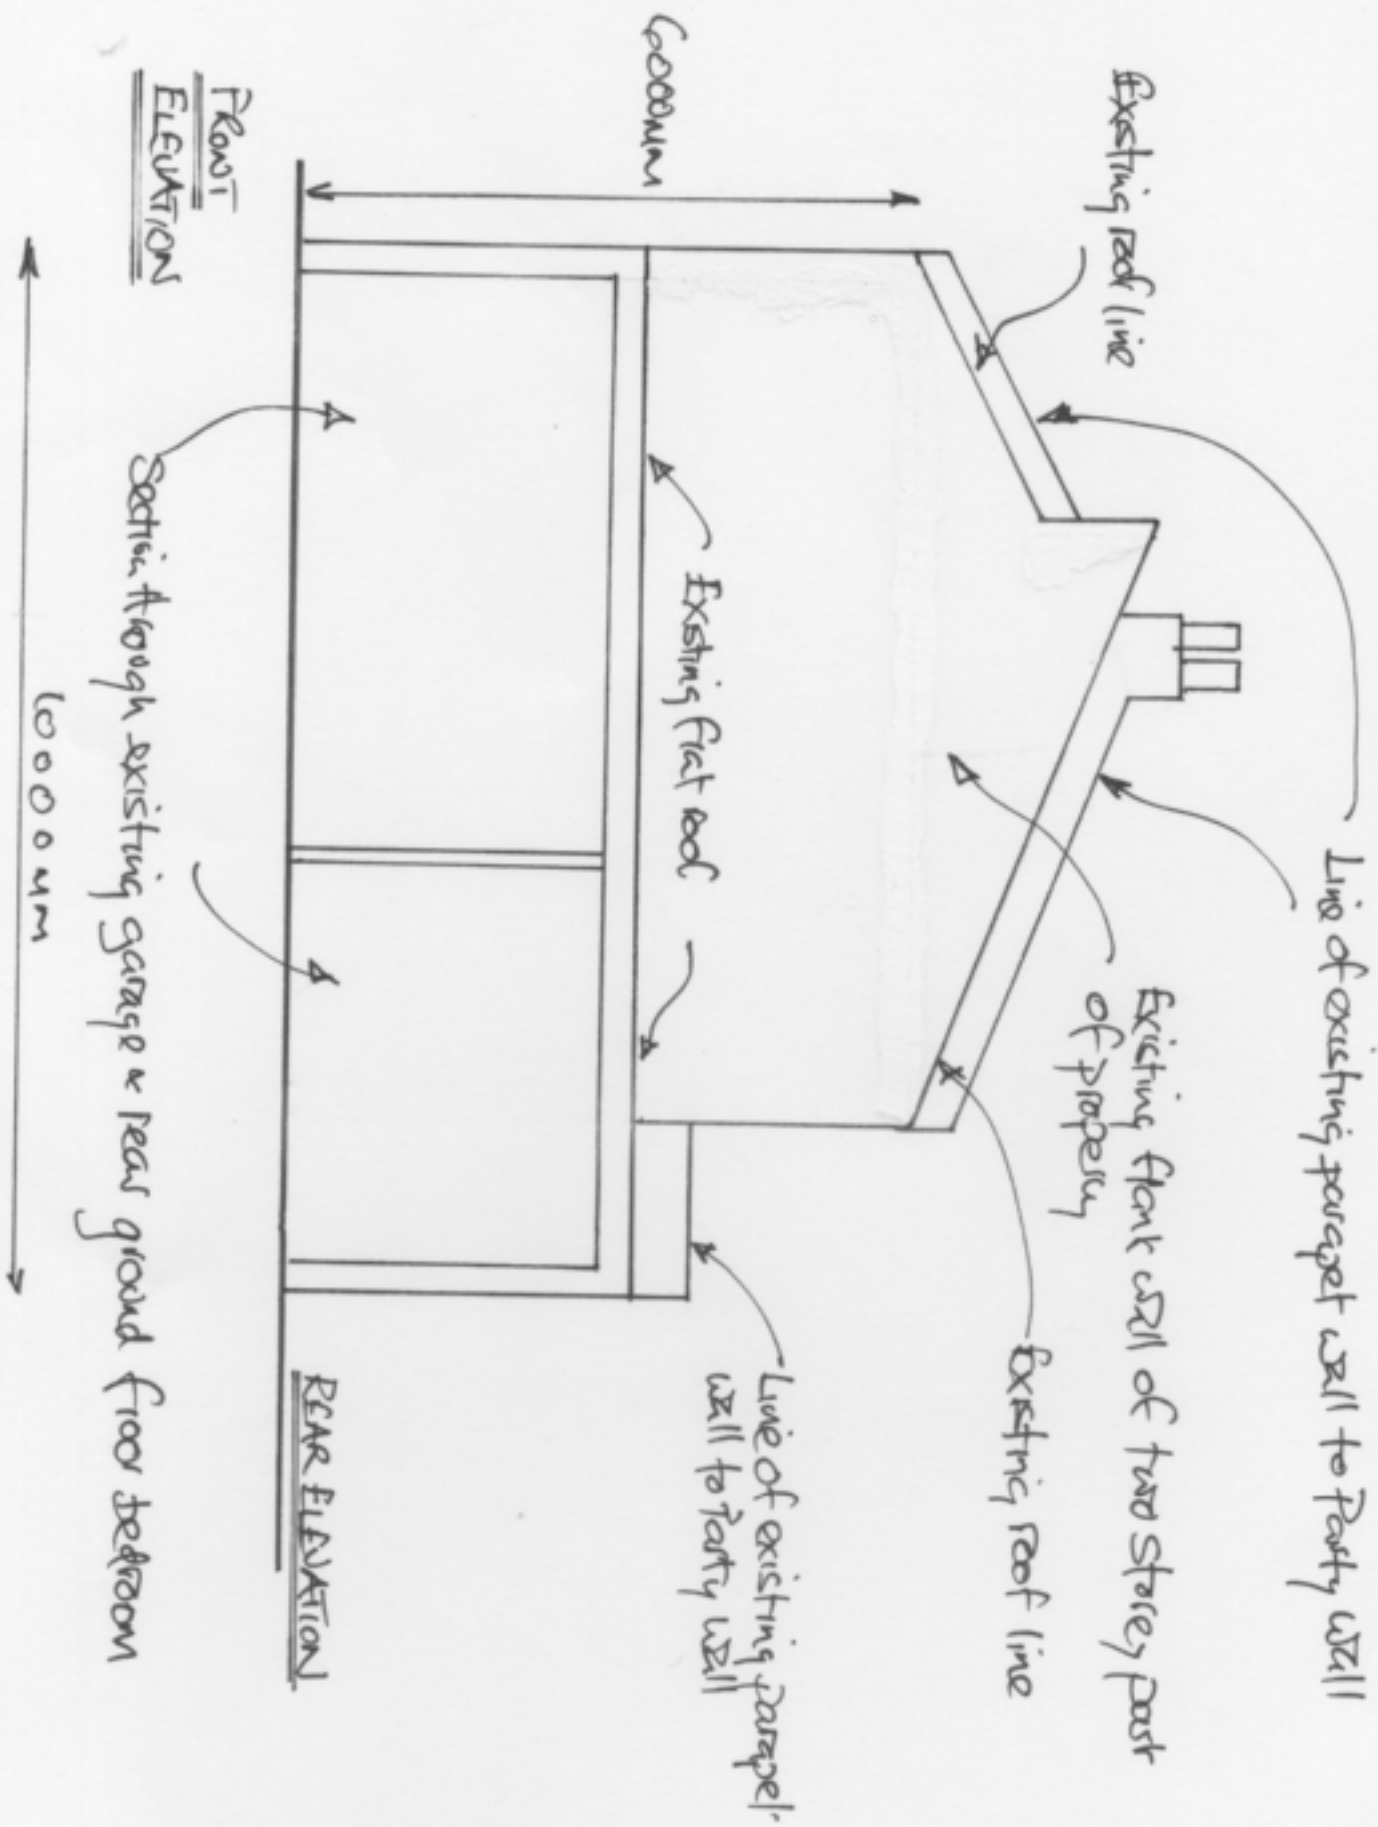 Line of existing parapet wall to Party Wall
Existing flank wall of two storey part
of property
Existing roof line
Existing roof line
6000mm
Existing flat roof
Line of existing parapet
wall to Party Wall
FRONT
ELEVATION
REAR ELEVATION
Section through existing garage & rear ground floor bedroom
10000mm